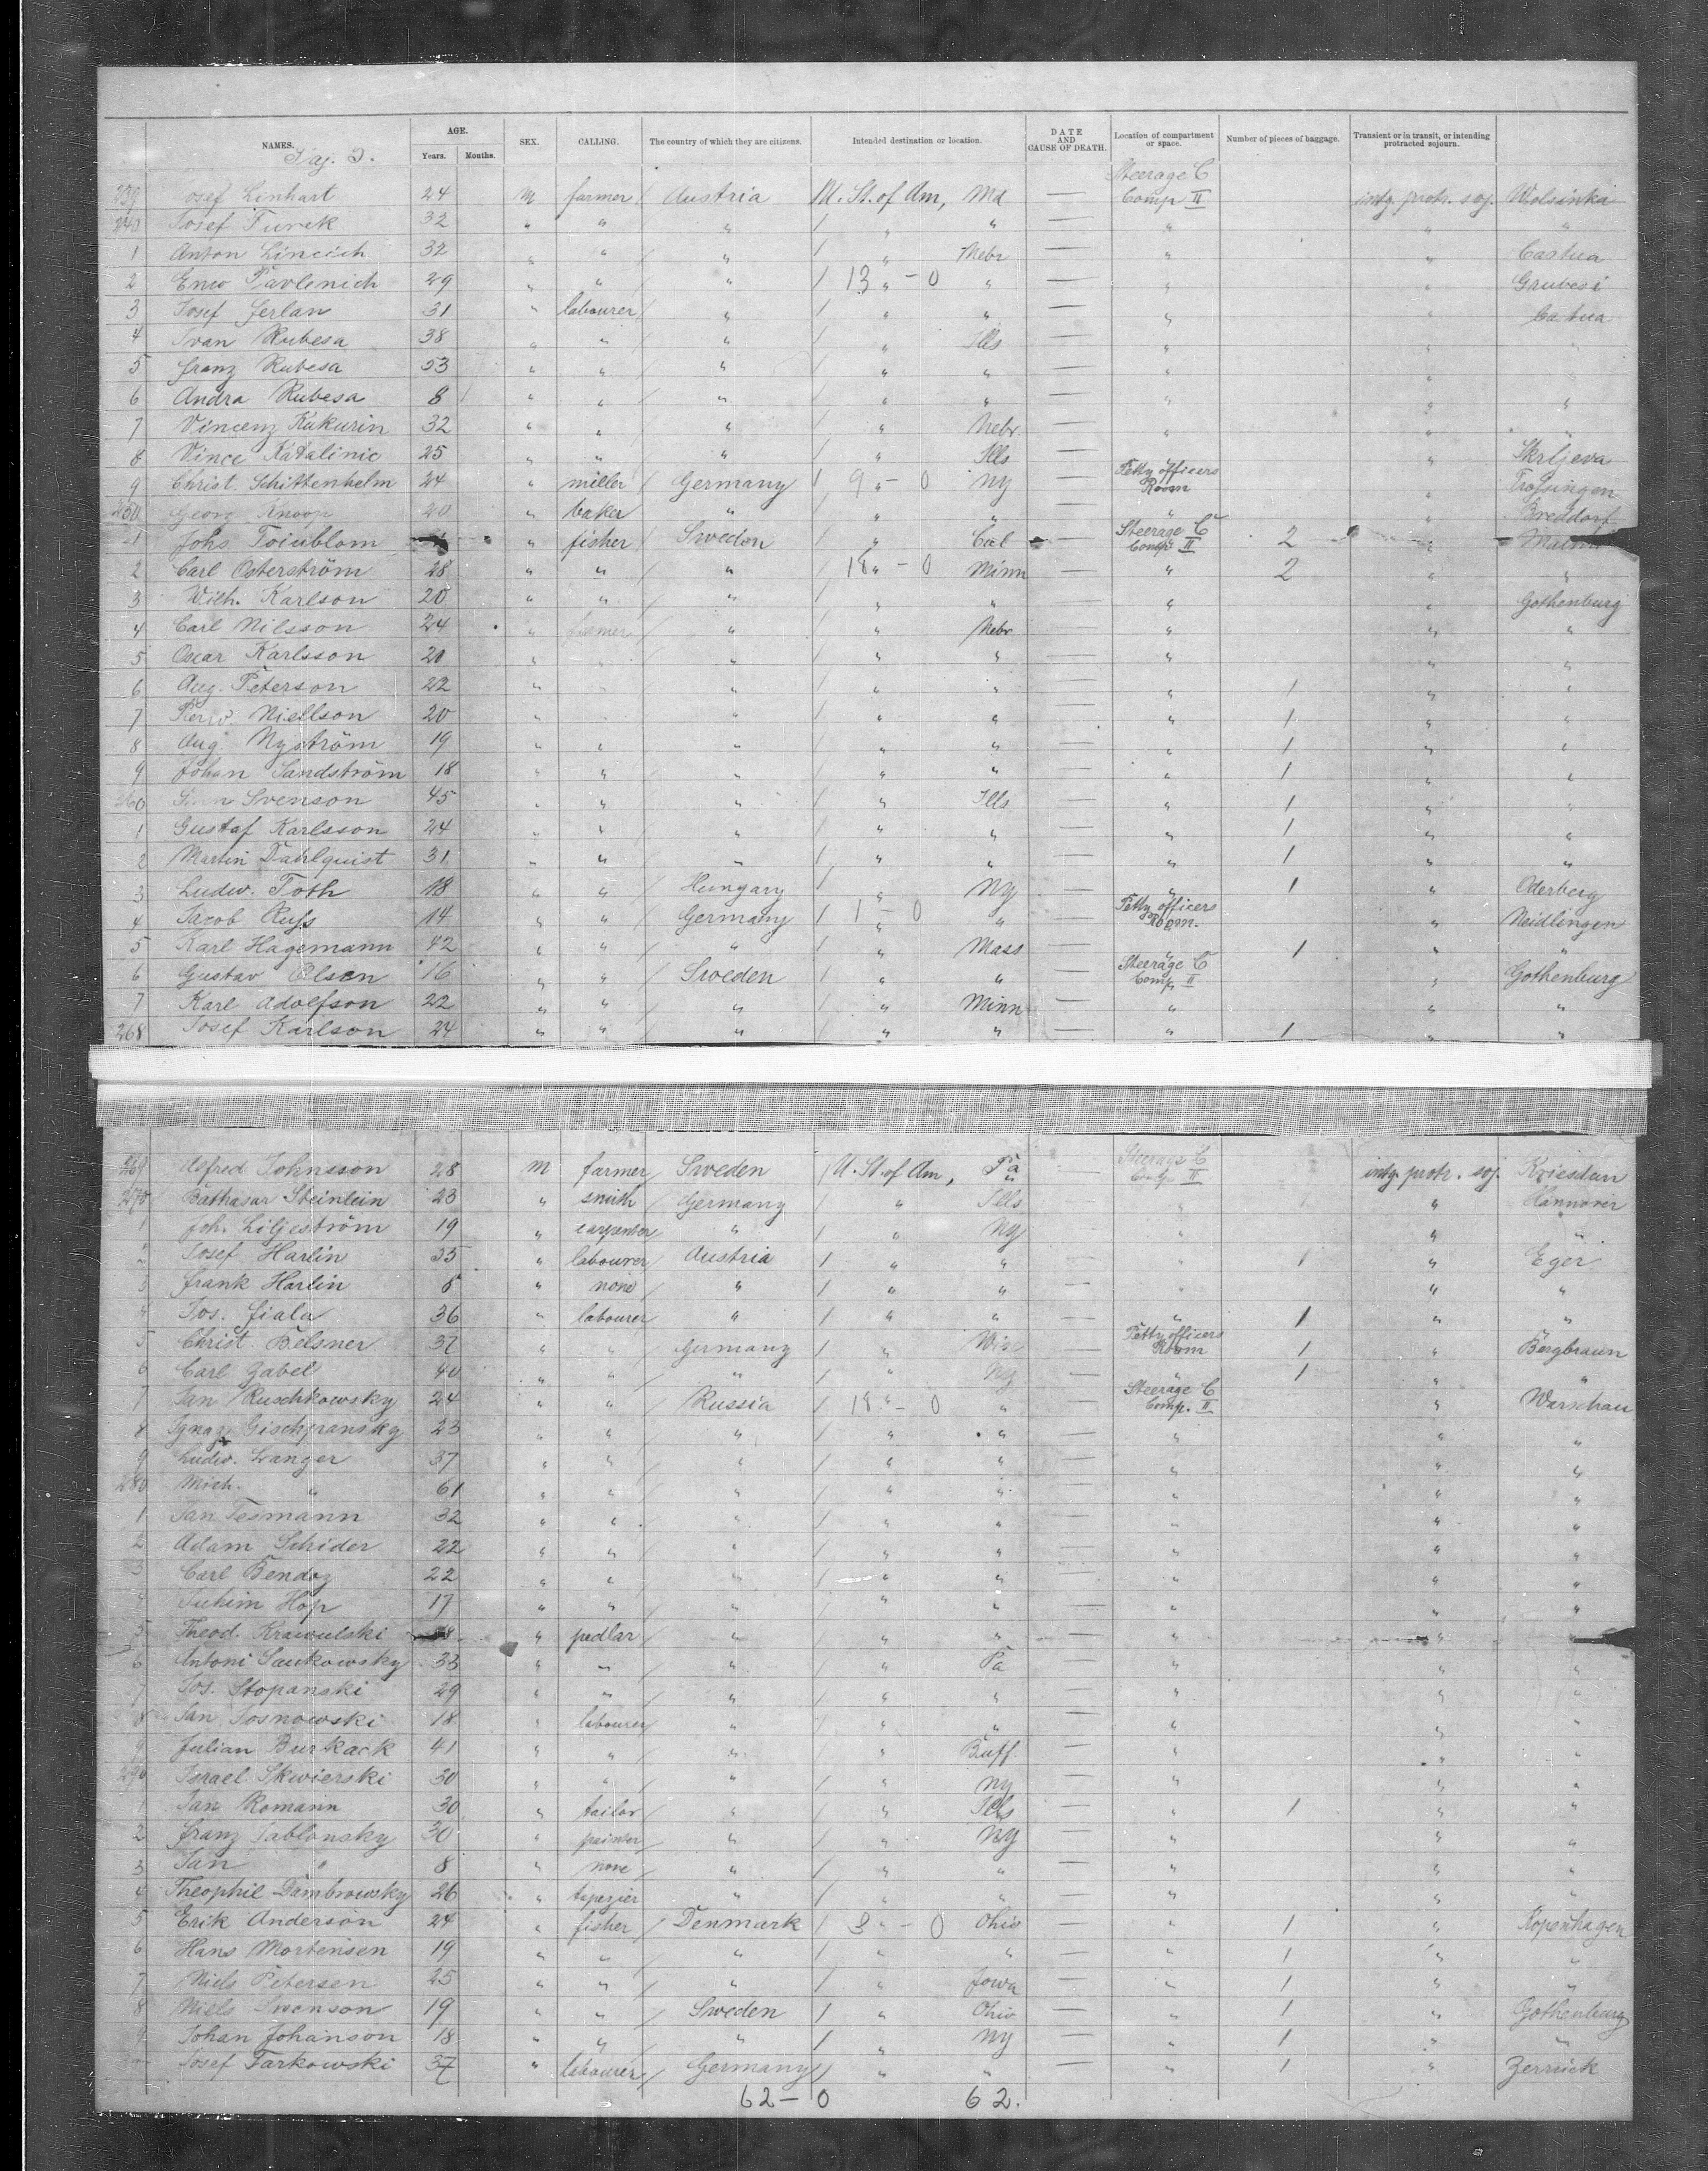 NAMES. AGE. Years. Months. SEX. CALLING. The country of which they are citizens. Intended destination or location. DATE AND CAUSE OF DEATH. Location of compartment or space. Number of pieces of baggage. Transient or in transit, or intending protracted sojourn.
239 Josef Linhart 24 M farmer Austria U. St. of Am, Md — Steerage C Comp II intg. protr. soj. Wolsinka
240 Josef Turek 32 " " " / " " — " " "
1 Anton 32 " " " / " Nebr — " " Castua
2 Pavlenich 29 " " " / 13 " - 0 " — " " Grubesi
3 Josef Jerlan 31 " labourer " / " " — " " Castua
4 Ivan Rubesa 38 " " " / " Ills — " " "
5 Franz Rubesa 53 " " " / " " — " " "
6 Andra Rubesa 8 " " " / " " — " " "
7 Vincenz Kukurin 32 " " " / " Nebr. — " " "
8 Vince Katalinic 25 " " " / " Ills — " " Skrljeva
9 Christ. Schittenhelm 24 " miller Germany / 9 " - 0 NY — Petty officers Room " Trossingen
250 Georg Knoop 20 " baker " / " " — " " Breddorf
1 Johs. " fisher Sweden / " Cal — Steerage C Comp II 2 " Malmö
2 Carl Osterström 28 " " " / 18 " - 0 Minn — " 2 " "
3 Wilh. Karlson 20 " " " / " " — " " Gothenburg
4 Carl Nilsson 24 " farmer " / " Nebr — " " "
5 Oscar Karlsson 20 " " " / " " — " " "
6 Aug. Peterson 22 " " " / " " — " 1 " "
7 Niellson 20 " " " / " " — " 1 " "
8 Aug. Nyström 19 " " " / " " — " 1 " "
9 Johan Sandström 18 " " " / " " — " 1 " "
260 Svenson 45 " " " / " Ills — " 1 " "
1 Gustaf Karlsson 24 " " " / " " — " 1 " "
2 Martin Dahlquist 31 " " " / " " — " 1 " "
3 Ludw. Toth 18 " " Hungary / " NY — " 1 " Oderberg
4 Jacob Russ 14 " " Germany / 1 " - 0 " — Petty officers Room. " Neidlingen
5 Karl Hagemann 42 " " " / " Mass — " 1 " "
6 Gustav Olsen 16 " " Sweden / " " — Steerage C Comp. II " Gothenburg
7 Karl Adolfson 22 " " " / " Minn — " " "
268 Josef Karlson 24 " " " / " " — " 1 " "
269 Alfred Johnsson 28 M farmer Sweden / U. St. of Am, Pa — Steerage C Comp. II intg. protr. soj.
270 Balthasar Steinlein 23 " smith Germany / " Ills — " 1 " Hannover
1 Joh. Liljeström 19 " carpenter " / " NY — " " "
2 Josef Harlin 35 " labourer Austria / " " — " 1 " Eger
3 Frank Harlin 5 " none " / " " — " " "
4 Jos. Fiala 36 " labourer " / " " — " 1 " "
5 Christ. Belsner 37 " " Germany / " Wisc — Petty officers Room 1 " Bergbraun
6 Carl Zabel 40 " " " / " NY — " 1 " "
7 Jan Ruschkowsky 24 " " Russia / 18 " - 0 " — Steerage C Comp. II " Warschau
8 Ignaz Gischpransky 23 " " " / " " — " " "
9 Ludw. Langer 37 " " " / " " — " " "
280 Mich. " 61 " " " / " " — " " "
1 Jan Tesmann 32 " " " / " " — " " "
2 Adam Schider 22 " " " / " " — " " "
3 Carl Bendoz 22 " " " / " " — " " "
4 Juhim Hop 17 " " " / " " — " " "
5 Theod. Krawulski " pedlar " / " " — " " "
6 Antoni Sankowsky 33 " " " / " Pa — " " "
7 Jos. Stopanski 29 " " " / " " — " " "
8 Jan Sosnowski 18 " labourer " / " " — " " "
9 Julian Burkack 41 " " " / " Buff. — " " "
290 Israel Skwierski 30 " " " / " NY — " " "
1 Jan Romann 30 " tailor " / " Ills — " 1 " "
2 Franz Jablonsky 30 " painter " / " NY — " " "
3 Jan " 8 " none " / " " — " " "
4 Theophil Dambrowsky 26 " tapezier " / " " — " " "
5 Erik Anderson 24 " fisher Denmark / 3 " - 0 Ohio — " 1 " Kopenhagen
6 Hans Mortensen 19 " " " / " " — " 1 " "
7 Niels Petersen 25 " " " / " Iowa — " 1 " "
8 Niels Swenson 19 " " Sweden / " Ohio — " 1 " Gothenburg
9 Johan Johanson 18 " " " / " NY — " 1 " "
Josef Tarkowski 37 " labourer Germany / " " — " 1 " Zerrück
62 - 0 62.